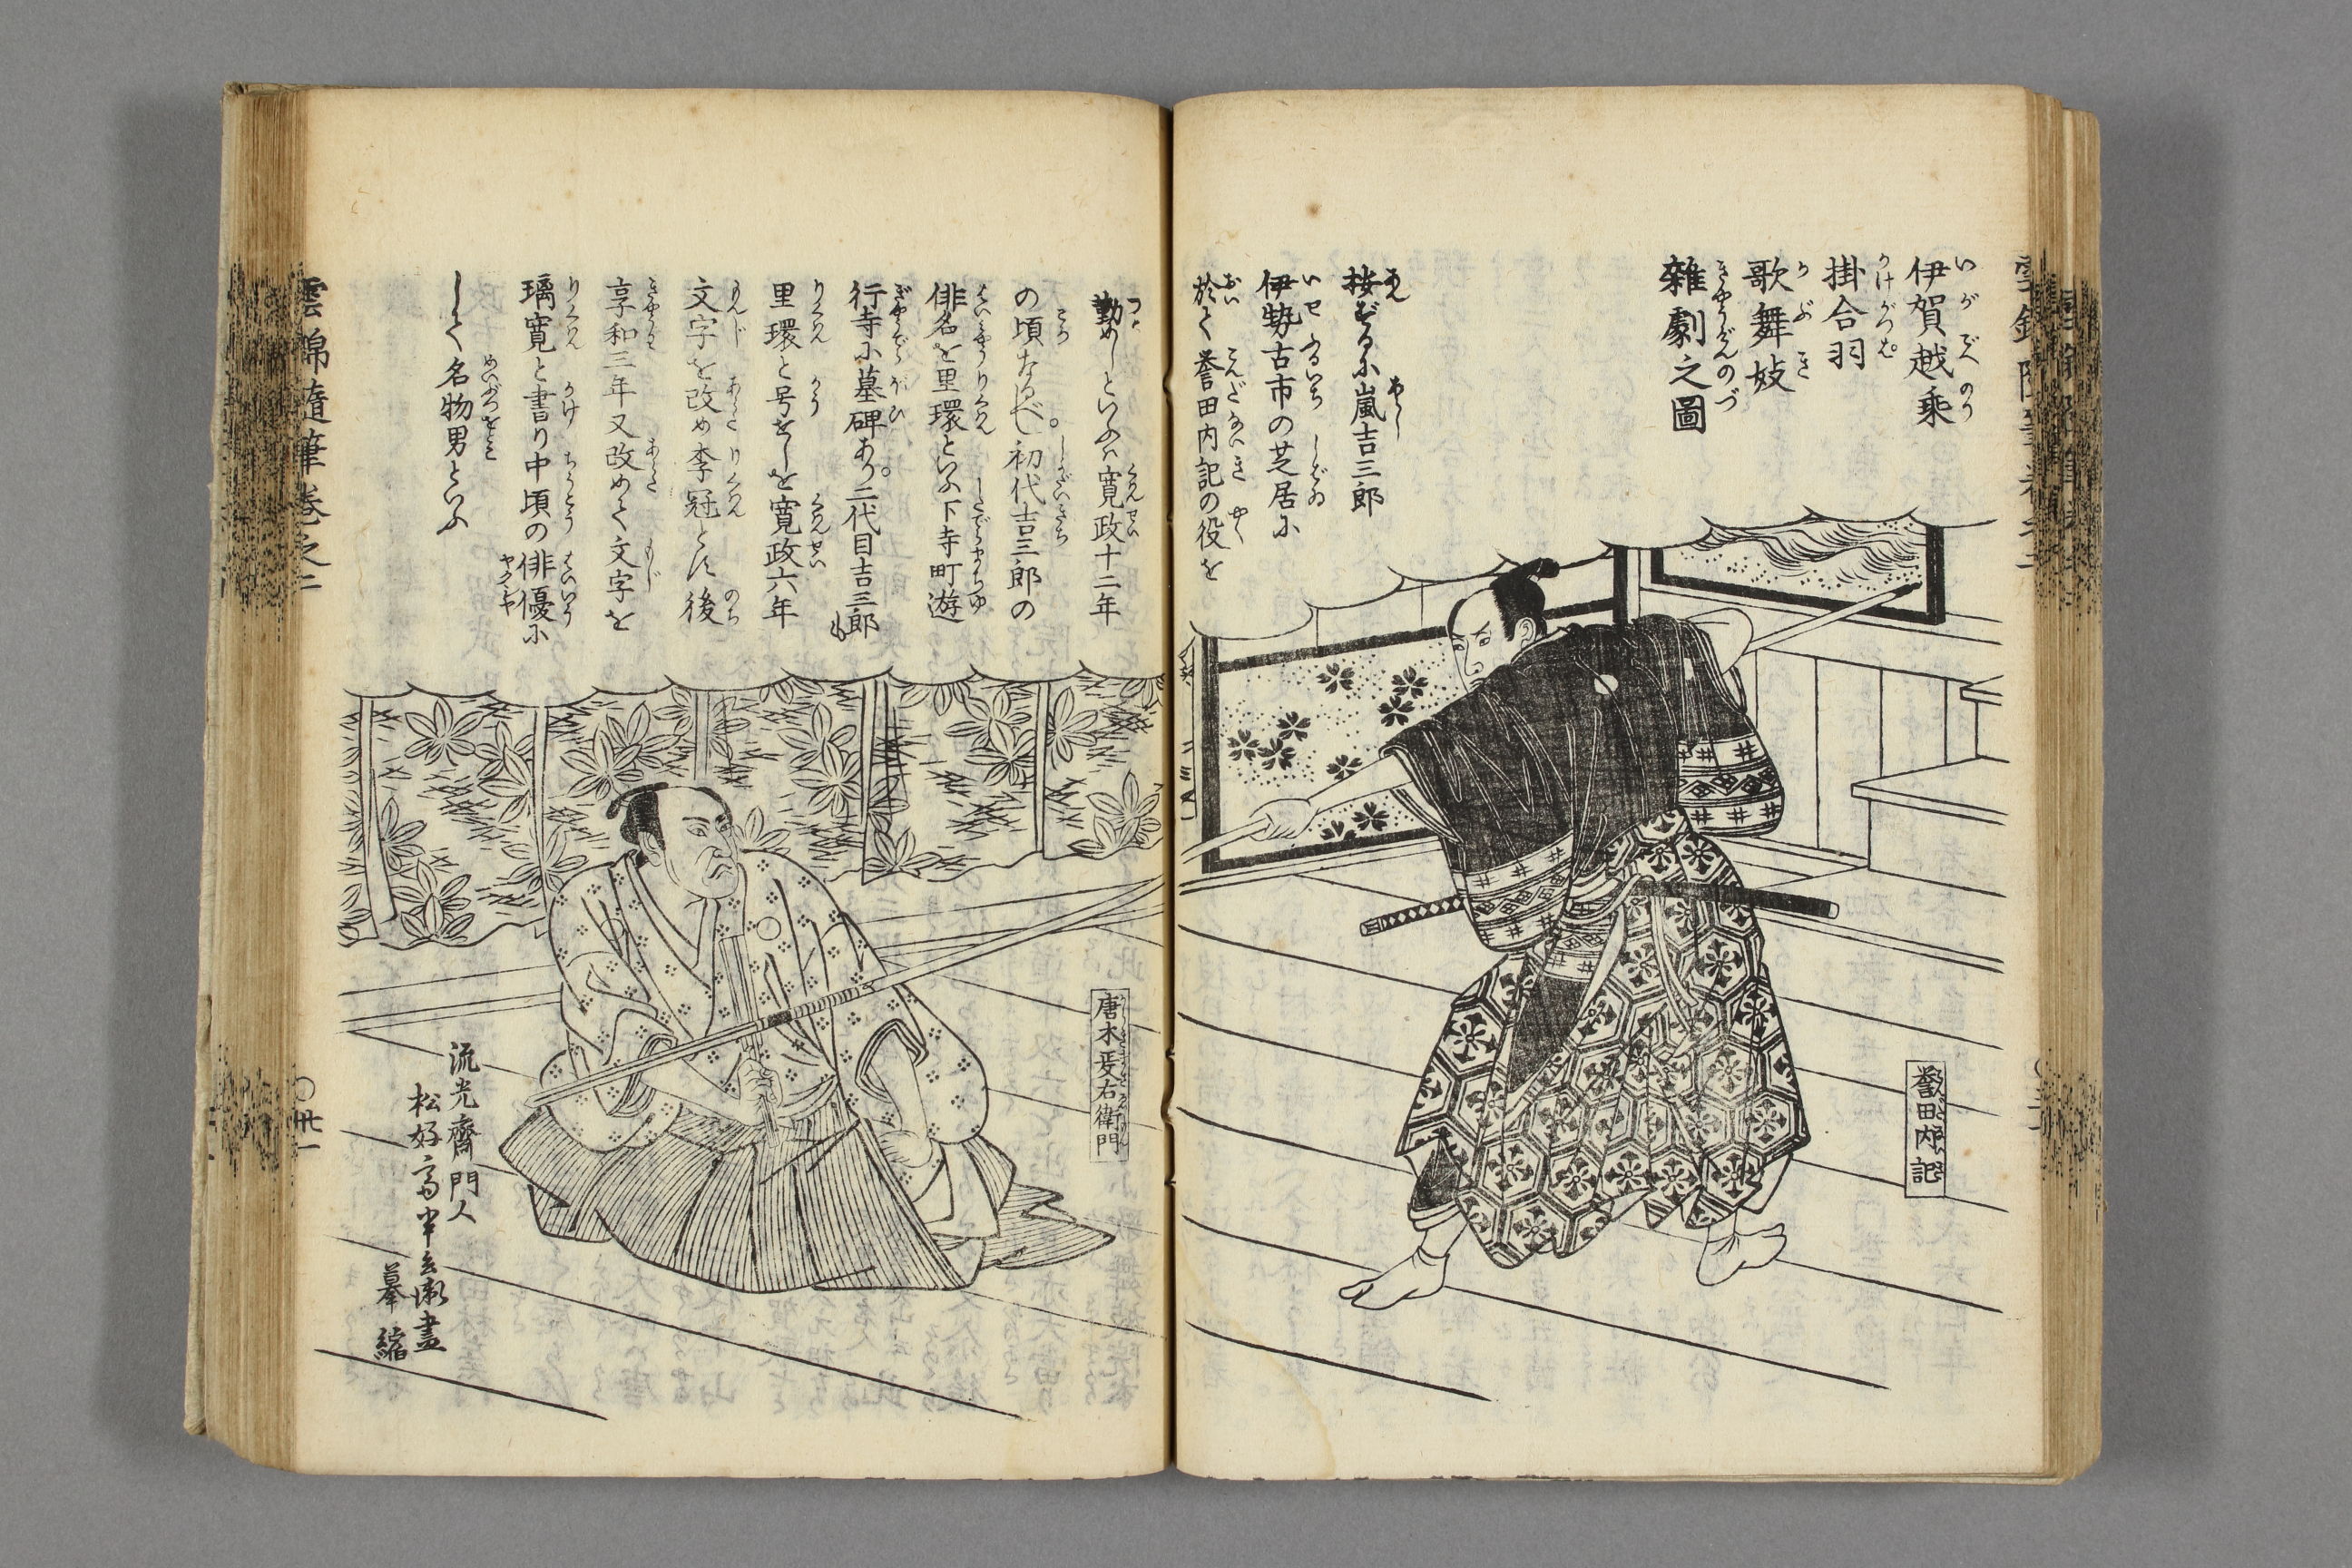 伊賀越乘
掛合羽
歌舞妓
雜劇之圖
按ずるに嵐吉三郎
伊勢古市の芝居に
於て誉田内記の役を
誉田内記
勤めしといふハ寛政十二年
の頃なるべし。初代吉三郎の
俳名を里環といふ下寺町遊
行寺に墓碑あり。二代目吉三郎も
里環と号せしを寛政六年
文字を改め李冠とす後
享和三年又改めて文字を
璃寛と書り中頃の俳優に
ヤクシヤ
して名物男といふ
唐木政右衛門
流光齋門人
松好齋半兵衞畫
摹縮
雲錦随筆 巻之二
〇卅一